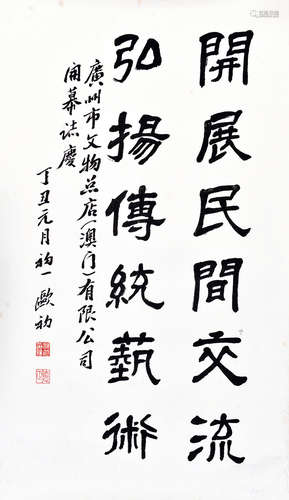 開展民間交流
弘揚傳統藝術
廣州市文物总店(澳门)有限公司
開幕誌慶
丁丑元月初一歐初